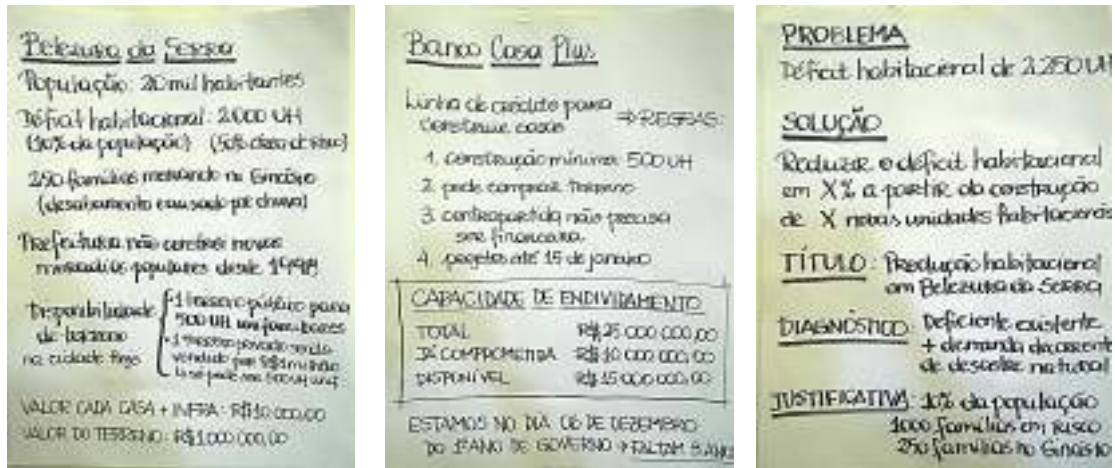 Belezura da Serra
População: 20 mil habitantes
Déficit habitacional: 2.000 UH
(10% da população) (50% área de risco)
250 famílias morando no Ginásio
(desabamento causado por chuva)
Prefeitura não constrói novas
moradias populares desde
Disponibilidade
de terreno
na cidade hoje
1 terreno público para
500 UH unifamiliares
1 terreno privado sendo
vendido por R$ 1 milhão
VALOR CADA CASA + INFRA: R$
VALOR DO TERRENO: R$ 1.000.000,00
Banco Casa Plus
Linha de crédito para
construir casas ⇒ REGRAS:
1. construção mínima 500 UH
2. pode comprar terreno
3. contrapartida não precisa
ser financeira.
4. projetos até 15 de janeiro
CAPACIDADE DE ENDIVIDAMENTO
TOTAL R$ 25.000.000,00
JÁ COMPROMETIDA R$ 10.000.000,00
DISPONÍVEL R$ 15.000.000,00
ESTAMOS NO DIA 06 DE DEZEMBRO
DO 1º ANO DE GOVERNO → FALTAM 3 ANOS
PROBLEMA
Déficit habitacional de 2.250 UH
SOLUÇÃO
Reduzir o déficit habitacional
em X% a partir da construção
de X novas unidades habitacionais
TÍTULO: Produção habitacional
em Belezura da Serra
DIAGNÓSTICO: Deficiente existente
+ demanda decorrente
de desastre natural
JUSTIFICATIVA: 10% da população
1000 famílias em risco
250 famílias no Ginásio